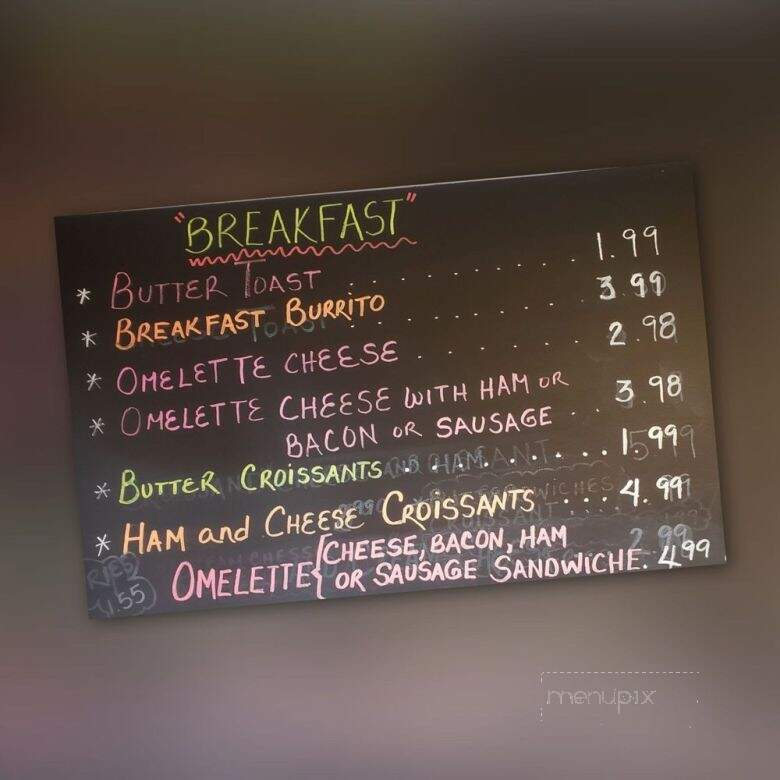 "BREAKFAST"
* BUTTER TOAST . . . . . . . . . . 1.99
* BREAKFAST BURRITO 3.99
* OMELETTE CHEESE . . . . . . . 2.98
* OMELETTE CHEESE WITH HAM OR
BACON OR SAUSAGE . . 3.98
* BUTTER CROISSANTS . . . . . . . 1.99
* HAM and CHEESE CROISSANTS . . . . 4.99
OMELETTE { CHEESE, BACON, HAM
OR SAUSAGE SANDWICHE. 4.99
1.55
menupix